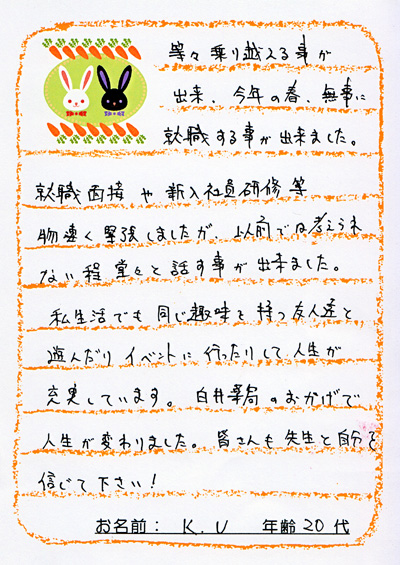 等々乗り越える事が
出来、今年の春、無事に
就職する事が出来ました。
就職面接や新入社員研修等
物凄く緊張しましたが、以前では考えられ
ない程堂々と話す事が出来ました。
私生活でも同じ趣味を持つ友人達と
遊んだりイベントに行ったりして人生が
充実しています。白井薬局のおかげで
人生が変わりました。皆さんも先生と自分を
信じて下さい!
お名前: K.U 年齢20代